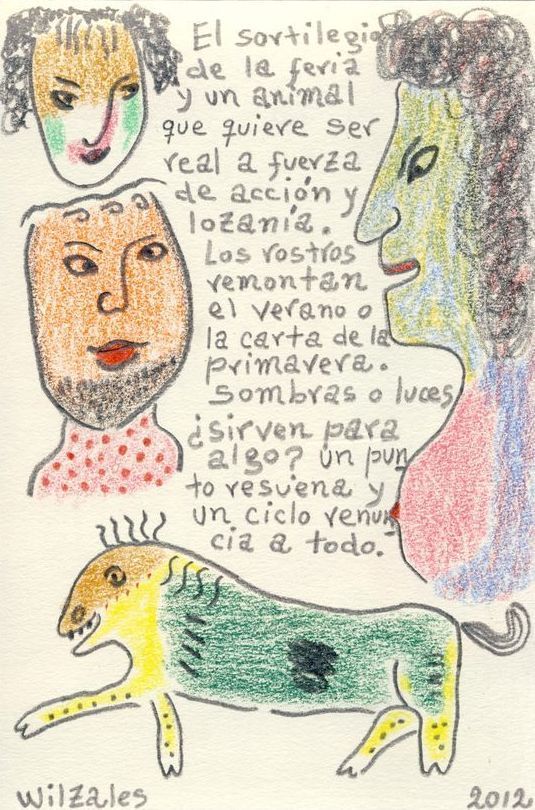 El sortilegio
de la feria
y un animal
que quiere ser
real a fuerza
de acción y
lozanía.
Los rostros
remontan
el verano o
la carta de la
primavera.
Sombras o luces
¿sirven para
algo? un pun
to resuena y
un ciclo renun
cia a todo.
Wilzales
2012